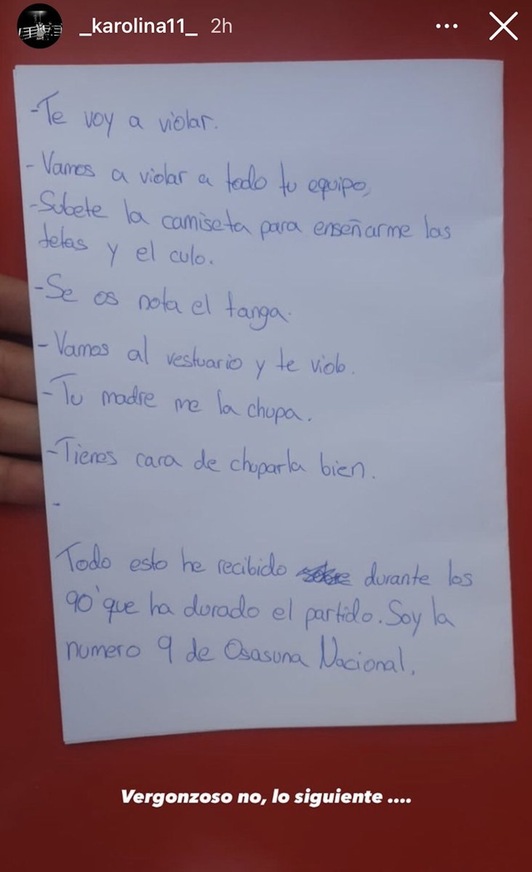 _karolina11_ 2h
-Te voy a violar.
-Vamos a violar a todo tu equipo,
-Subete la camiseta para enseñarme las
tetas y el culo.
-Se os nota el tanga.
-Vamos al vestuario y te violo.
-Tu madre me la chupa.
-Tienes cara de chuparla bien.
-
Todo esto he recibido durante los
90' que ha durado el partido. Soy la
numero 9 de Osasuna Nacional.
Vergonzoso no, lo siguiente ....